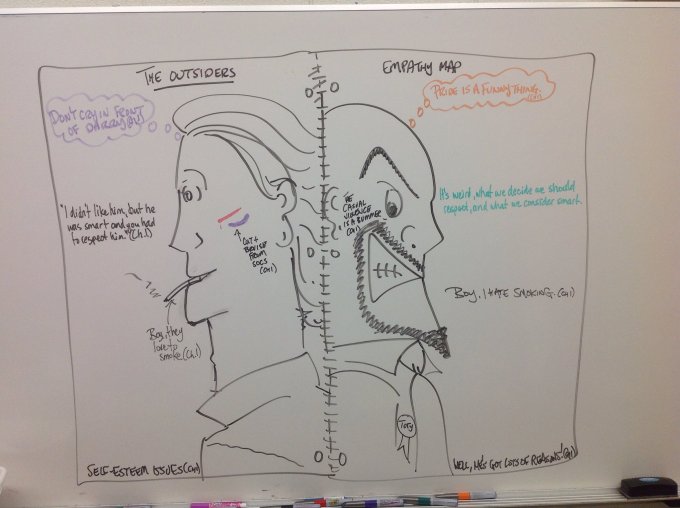 THE OUTSIDERS
EMPATHY MAP
DON'T CRY IN FRONT
OF DARRY
PRIDE IS A FUNNY THING.
(CH1)
"I didn't like him, but he
was smart and you had
to respect him." (Ch.1)
CUT +
BRUISE
FROM
SOCS
(CH1)
CASUAL
VIOLENCE
IS A BUMMER
(CH1)
It's weird, what we decide we should
respect, and what we consider smart.
Boy, they
love to
smoke. (Ch.1)
BOY, I HATE SMOKING. (CH1)
Tory
SELF-ESTEEM ISSUES (CH1)
WELL, HE'S GOT LOTS OF REASONS! (CH1)